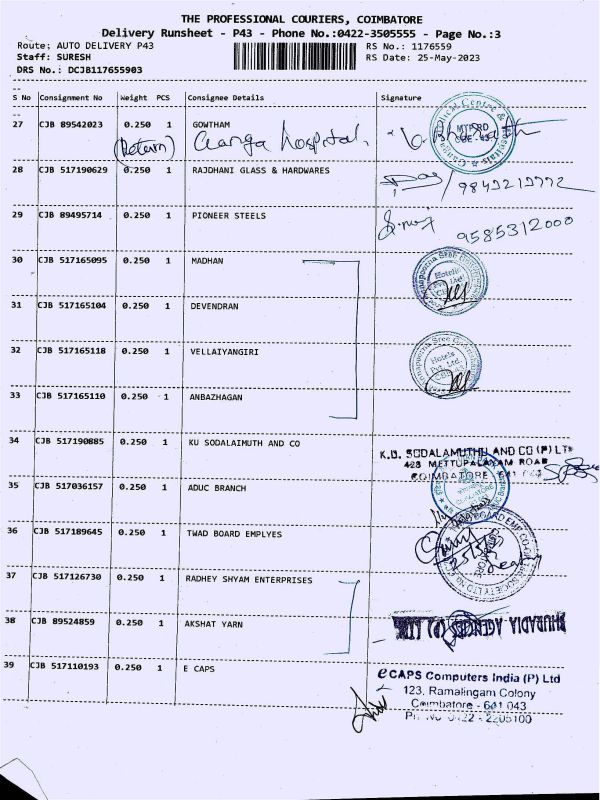 THE PROFESSIONAL COURIERS, COIMBATORE
Delivery Runsheet - P43 - Phone No.:0422-3505555 - Page No.:3
Route; AUTO DELIVERY P43 RS No.: 1176559
Staff: SURESH RS Date: 25-May-2023
DRS No.: DCJB117655903
S No Consignment No Weight PCS Consignee Details Signature
27 CJB 89542023 0.250 1 GOWTHAM
(Return) Ganga hospital,
28 CJB 517190629 0.250 1 RAJDHANI GLASS & HARDWARES
9842212992
29 CJB 89495714 0.250 1 PIONEER STEELS
9585312000
30 CJB 517165095 0.250 1 MADHAN
31 CJB 517165104 0.250 1 DEVENDRAN
Hotels
Pvt. Ltd.
32 CJB 517165118 0.250 1 VELLAIYANGIRI
33 CJB 517165110 0.250 1 ANBAZHAGAN
34 CJB 517190885 0.250 1 KU SODALAIMUTH AND CO
K.U. SODALAMUTHU AND CO (P) LTD
428 METTUPALAYAM ROAD
COIMBATORE
35 CJB 517036157 0.250 1 ADUC BRANCH
36 CJB 517189645 0.250 1 TWAD BOARD EMPLYES
37 CJB 517126730 0.250 1 RADHEY SHYAM ENTERPRISES
38 CJB 89524859 0.250 1 AKSHAT YARN
BHURADIA AGENCIES (P) LTD.
39 CJB 517110193 0.250 1 E CAPS
eCAPS Computers India (P) Ltd
123, Ramalingam Colony
Coimbatore - 641 043
Ph. No 0422 - 2205100